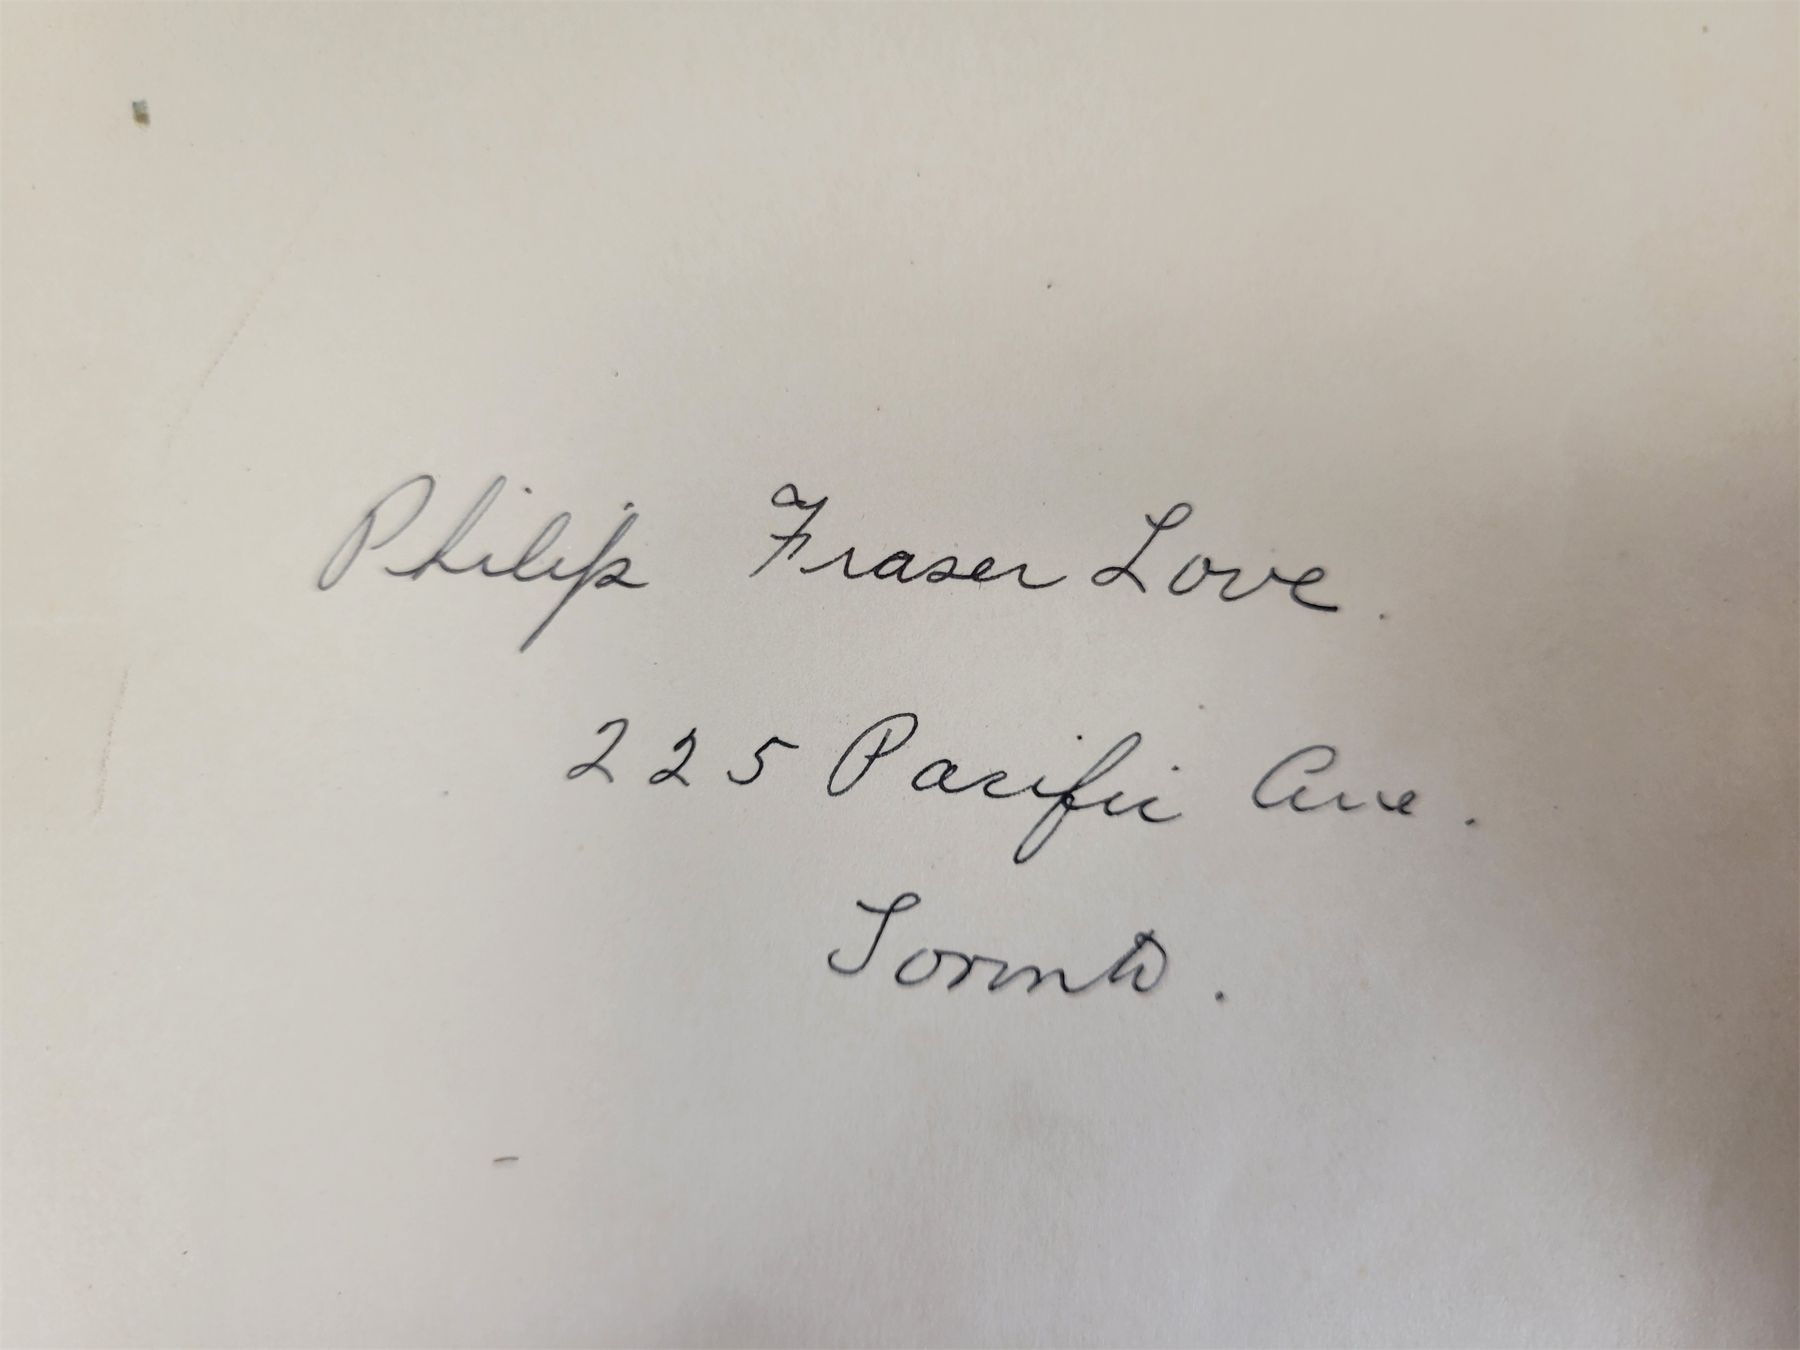 Philip Fraser Love.
225 Pacific Ave.
Toronto.